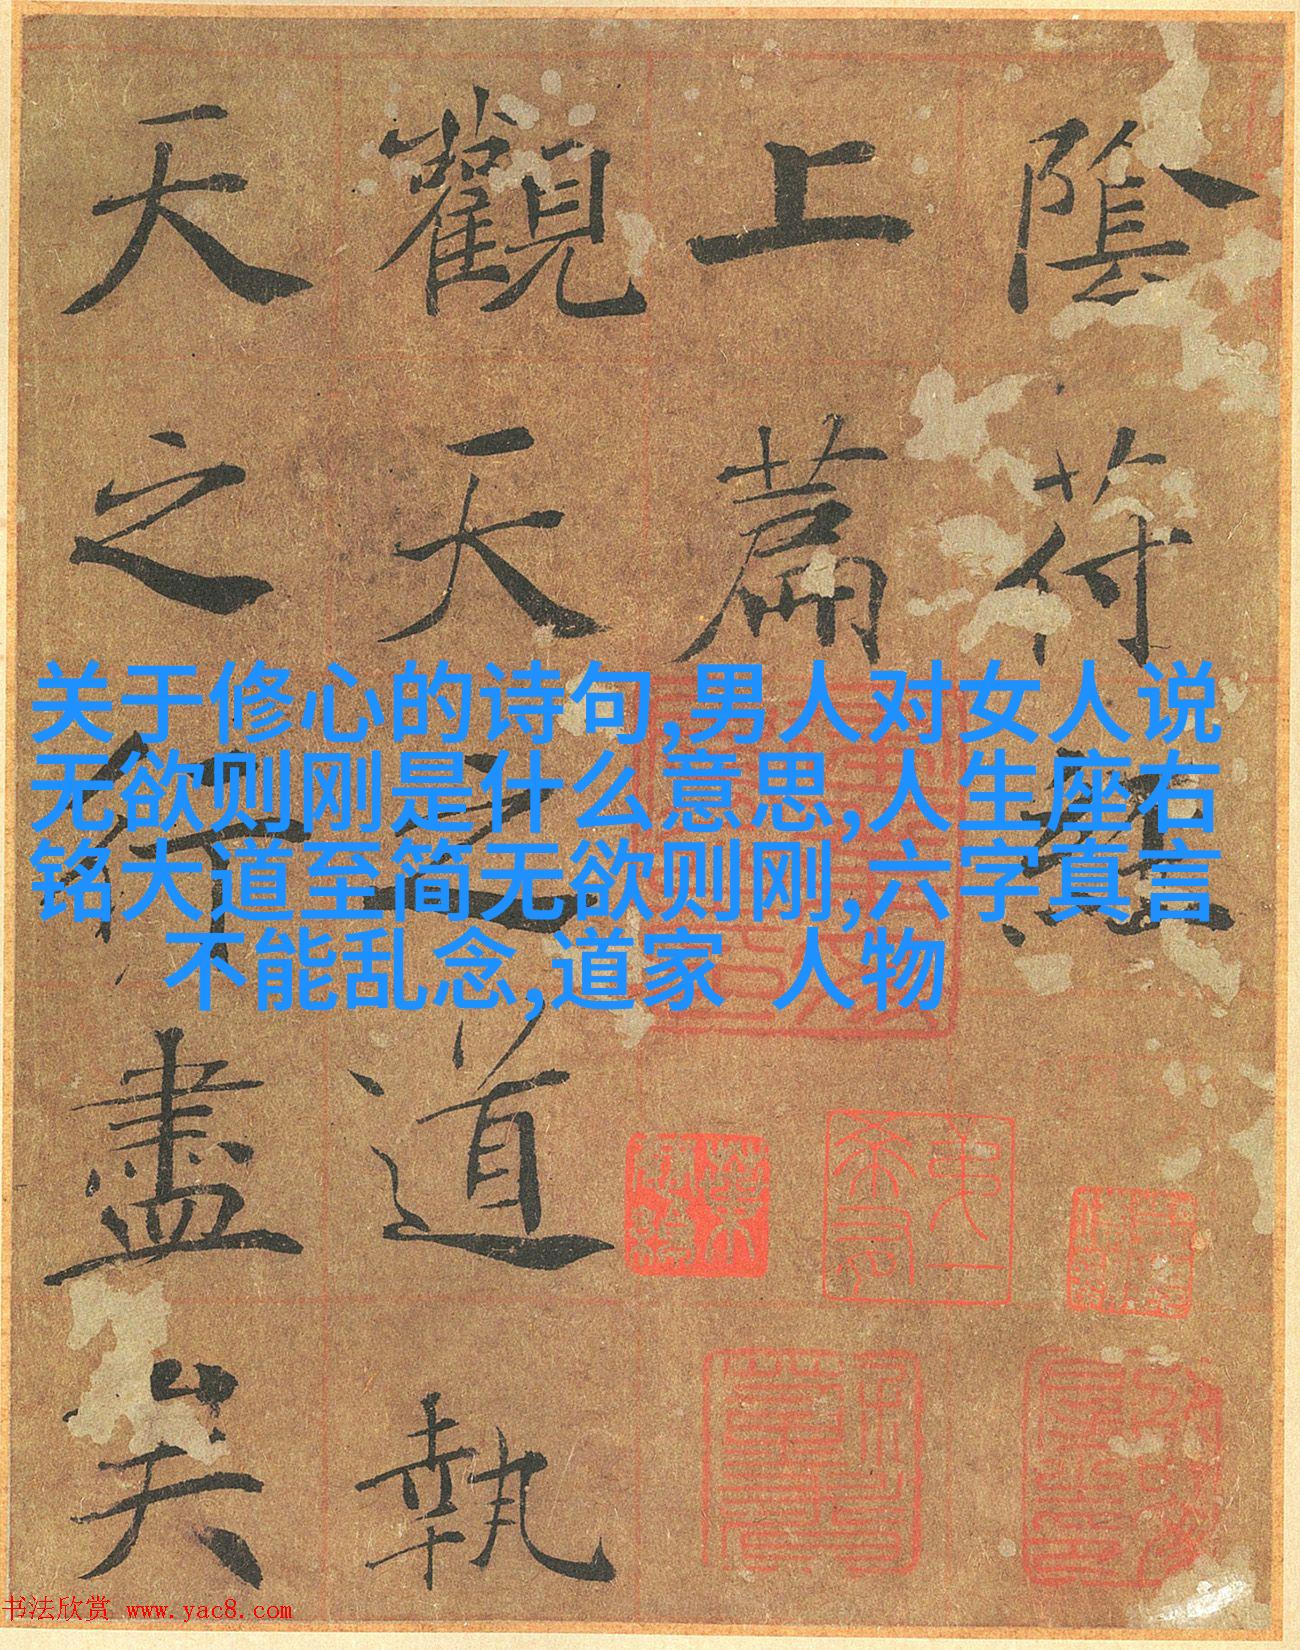 陰符經
上篇
觀天之道執
天之行盡矣
关于修心的诗句,男人对女人说
无欲则刚是什么意思,人生座右
铭大道至简无欲则刚,六字真言
不能乱念,道家 人物
书法欣赏 www.yac8.com